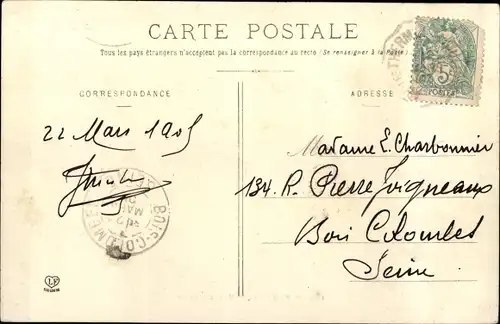 CARTE POSTALE
Tous les pays étrangers n'acceptent pas la correspondance au recto (Se renseigner à la Poste)
CORRESPONDANCE
ADRESSE
22 Mars 1905
Madame E. Charbonnier
134. R. Pierre Joigneaux
Bois Colombes
Seine
BOIS-COLOMBES
5
POSTES
LF